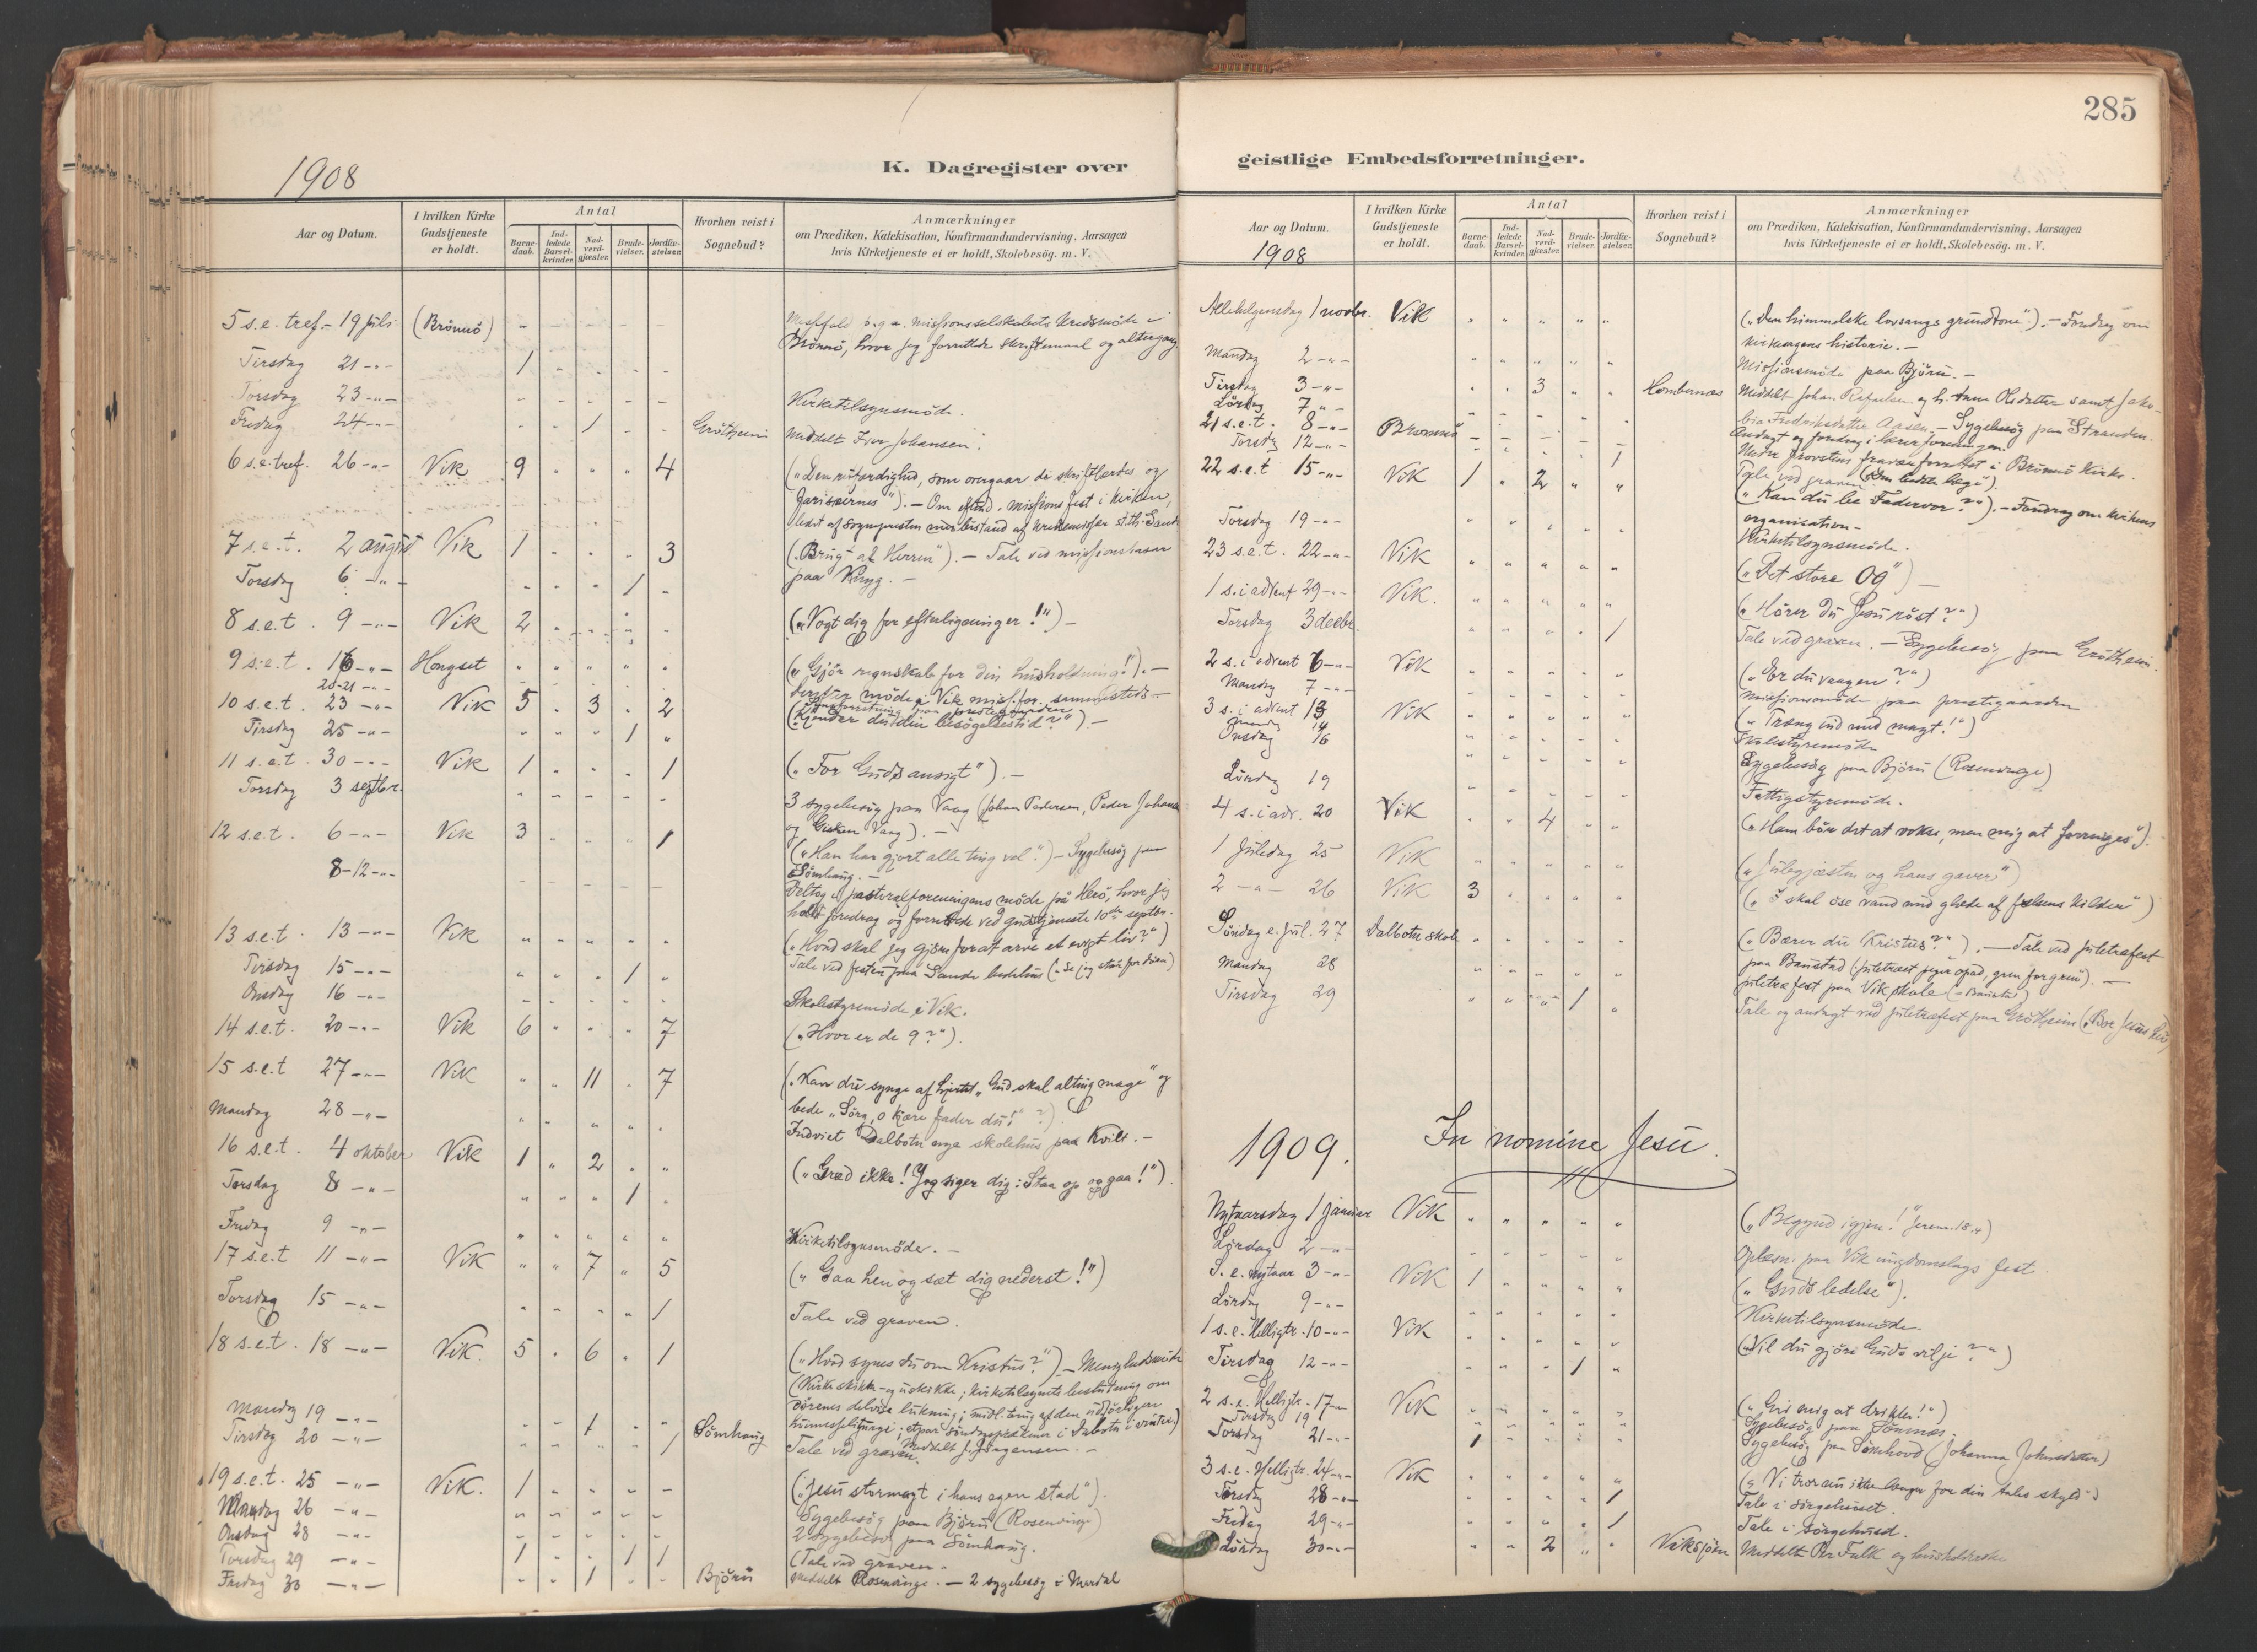 285
1908
K. Dagregister over
geistlige Embedsforretninger.
Aar og Datum.
I hvilken Kirke Gudstjeneste er holdt.
Antal
Barnedaab.
Indledede Barselkvinder.
Nadverdgjæster.
Brudevielser.
Jordfæstelser.
Hvorhen reist i Sognebud?
Anmærkninger
om Prædiken, Katekisation, Konfirmandundervisning, Aarsagen
hvis Kirketjeneste ei er holdt, Skolebesøg. m. V.
5 s.e. tref. - 19 juli (Brönnö) Messefald p.g.a. missionsselskabets kredsmöde i
Brönnö, hvor jeg forrettede skriftemaal og altergang
Tirsdag 21 -"- 1
Torsdag 23 -"- Kirketilsynsmöde.
Fredag 24 -"- 1 Gröttheim Meddelt Johansen.
6 s.e. tref. 26 -"- Vik 9 4 („Den retfærdighed, som overgaar de skriftlærdes og
farisæernes"). - Om eftmd. missionsfest i kirken,
7 s.e.t. 2 august Vik 1 3 („Brugt af Herren"). - Tale ved missionsbasar
paa
Torsdag 6 -"- 1
8 s.e.t. 9 -"- Vik 2 („Vogt dig for efterligninger!") -
9 s.e.t. 16 -"- Hongset („Gjör regnskab for din husholdning!"). -
20-21 -"-
möde i Vik miss.for. sammesteds -
10 s.e.t. 23 -"- Vik 5 3 2 („Kjender du din besögelsestid?"). -
Tirsdag 25 -"- 1
11 s.e.t. 30 -"- Vik 1 1 („For Guds ansigt"). -
Torsdag 3 septbr. 3 sygebesög paa Vaag (Johan Pedersen, Peder Johansen
og Vaag). -
12 s.e.t. 6 -"- Vik 3 1 („Han har gjort alle ting vel.") - Sygebesög paa
Sömhaug. -
8-12 -"- Deltog i pastoralforeningens möde på Herö, hvor jeg
holdt foredrag og forrettede ved gudstjeneste 10de septbr.
13 s.e.t. 13 -"- Vik („Hvad skal jeg gjöre for at arve et evigt liv?")
Tirsdag 15 -"- 1 Tale ved festen paa Sande bedehus („Se jeg står for dören")
Onsdag 16 -"- Skolestyremöde i Vik.
14 s.e.t. 20 -"- Vik 6 7 („Hvor er de 9?").
15 s.e.t 27 -"- Vik 11 7 („Kan du synge af hjertet „Gud skal alting mage" og
bede „Sörg, o kjære fader du!"?)
Mandag 28 -"- Indviet Dalbotn nye skolehus paa Kvilt. -
16 s.e.t. 4 oktober Vik 1 2 („Græd ikke! Jeg siger dig: Staa op og gaa!").
Torsdag 8 -"- 1
Fredag 9 -"- Kirketilsynsmöde. -
17 s.e.t 11 -"- Vik 7 5 („Gaa hen og sæt dig nederst!")
Torsdag 15 -"- 1 Tale ved graven.
18 s.e.t. 18 -"- Vik. 5 6 1 („Hvad synes du om Kristus?") - Menighedsmöde
(Kirkeskikke - og uskikke; kirketilsynets beslutning om
dörenes delvise lukning;
Mandag 19 -"- 1 Sömhaug Meddelt J. Jörgensen. -
Tirsdag 20 -"- 1 Tale ved graven.
19 s.e.t. 25 -"- Vik. 1 („Jesu stormagt i hans egen stad").
Mandag 26 -"- Sygebesög paa Björu (Rosenvinge)
Onsdag 28 -"- 2 sygebesög paa Sömhaug.
Torsdag 29 -"- 1 1 1 (Tale ved graven.
Fredag 30 -"- 1 Björu Meddelt Rosenvinge. - 2 sygebesög i Mardal
Aar og Datum.
1908
I hvilken Kirke Gudstjeneste er holdt.
Antal
Barnedaab.
Indledede Barselkvinder.
Nadverdgjæster.
Brudevielser.
Jordfæstelser.
Hvorhen reist i Sognebud?
Anmærkninger
om Prædiken, Katekisation, Konfirmandundervisning, Aarsagen
hvis Kirketjeneste ei er holdt, Skolebesøg. m. V.
Allehelgensdag 1 novbr. Vik („Den himmelske lovsangs grundtone"). - Foredrag om
kirkesagens historie. -
Mandag 2 -"- Missionsmöde paa Björu. -
Tirsdag 3 -"- 3 Hombornæs Meddelt Johan Rafaelsen og h.
Lördag 7 -"- Sygebesög paa Stranden.
21 s.e.t. 8 -"- Brönnö
Torsdag 12 -"- 1 Tale ved graven
22 s.e.t 15 -"- Vik 1 2 („Kan du bede Fadervor?"). - Foredrag om kirkens
organisation -
Torsdag 19 -"- Kirketilsynsmöde.
23 s.e.t. 22 -"- Vik („Det store Og") -
1 s. i advent 29 -"- Vik. („Hörer du Jesu röst?")
Torsdag 3 decbr. 1 Tale ved graven. - Sygebesög paa Gröttheim.
2 s. i advent 6 -"- Vik („Er du vaagen?")
Mandag 7 -"- Missionsmöde paa prestegaarden
3 s. i advent 13 Vik („Træng ind med magt!")
Mandag 14 Skolestyremöde
Onsdag 16 Sygebesög paa Björu (Rosenvinge)
Lördag 19 Fattigstyremöde.
4 s. i adv. 20 Vik 4 („Ham bör det at vokse, men mig at forringes").
1 Juledag 25 Vik („Julegjæsten og hans gaver")
2 -"- 26 Vik 3 („I skal öse vand med glæde af frelsens kilder")
Söndag e. Jul. 27 Dalbotn skole („Bærer du Kristus?"). - Tale ved juletræfest
Mandag 28 paa Baustad (juletræet peger opad, gren for gren). -
Tirsdag 29 1 juletræfest paa Vik skole
Tale og andagt ved juletræfest paa Gröttheim
1909. In nomine Jesu.
Nytaarsdag 1 januar Vik („Begynd igjen!" Jerem. 18.4)
Lördag 2 -"- Oplæsn. paa Vik ungdomslags fest
S. e. nytaar 3 -"- Vik 1 („Guds ledelse").
Lördag 9 -"- Kirketilsynsmöde.
1 s.e. Helligtr. 10 -"- Vik („Vil du gjöre Guds vilje?")
Tirsdag 12 -"- 1
2 s.e. Helligtr. 17 -"- Vik („Giv mig at drikke!")
Tirsdag 19 Sygebesög paa Sömnæs.
Torsdag 21 -"- 1 Sygebesög paa Sömhovd (Johanna Johnsdatter)
3 s.e. Helligtr. 24 -"- Vik („Vi tror nu ikke længer for din tales skyld")
Torsdag 28 -"- 1 Tale i sörgehuset.
Fredag 29 -"- 1 Tale i sörgehuset.
Lördag 30 -"- 2 Viksjöen Meddelt Per Falk og